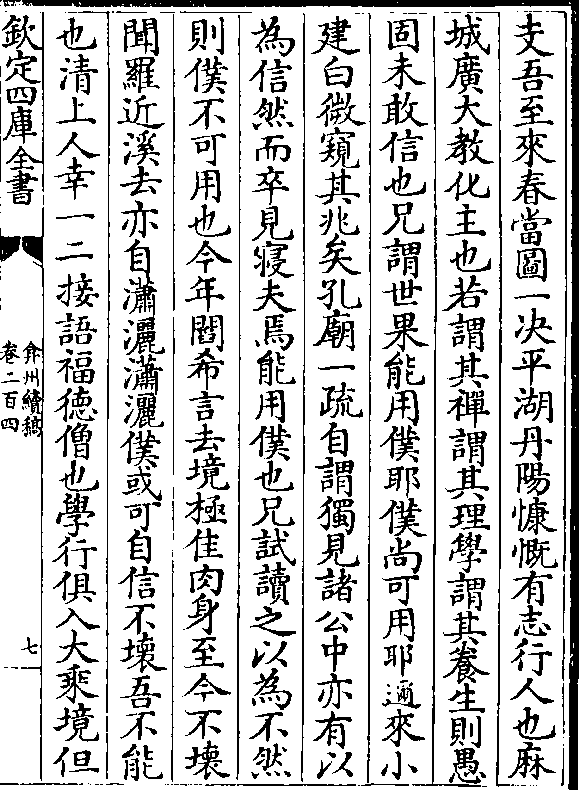 支吾至來春當圖一决平湖丹陽慷慨有志行人也麻
城廣大教化主也若謂其禪謂其理學謂其養生則愚
固未敢信也兄謂世果能用僕耶僕尚可用耶邇來小
建白微窺其兆矣孔廟一疏自謂獨見諸公中亦有以
為信然而卒見寢夫焉能用僕也兄試讀之以為不然
則僕不可用也今年閻希言去境極佳肉身至今不壞
聞羅近溪去亦自瀟灑瀟灑僕或可自信不壞吾不能
也清上人幸一二接語福徳僧也學行俱入大乘境但
欽定四庫全書
弇州續稿
卷二百四
七